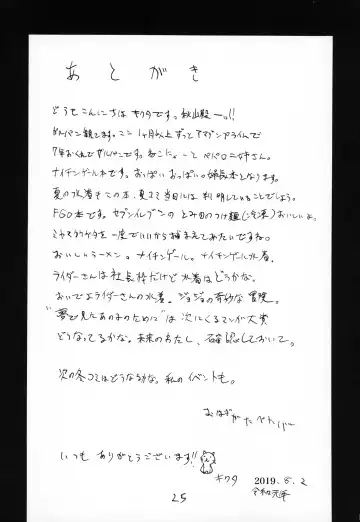 あとがき
どうもこんにちは キクタです。秋山殿ー!!
ガルパン観てます。ここ1ヶ月以上ずっとアマゾンプライムで
7年おくれでガルパンです。ねこにゃーと ペパロニ姉さん。
ナイチンゲール本です。おっぱい おっぱい。となります。
夏の水着 この本、夏コミ当日には 判明していることでしょう。
FGO本です。セブンイレブンの とみ田のつけ麺(冷凍)おいしいよ。
ミヤマクワガタを一度でいいから捕まえてみたいですね。
おいしいラーメン。ナイチンゲール。ナイチンゲール水着。
ライダーさんは 社長枠だけど 水着はどうかな。
おいでよライダーさんの水着。ジョジョの奇妙な冒険。
は 次にくるマンガ大賞
どうなってるかな。未来のわたし、確認しておいて。
次の冬コミはどうなるかな。私のイベントも。
いつも ありがとうございます!!
キクタ
2019.8.2
令和元年
25